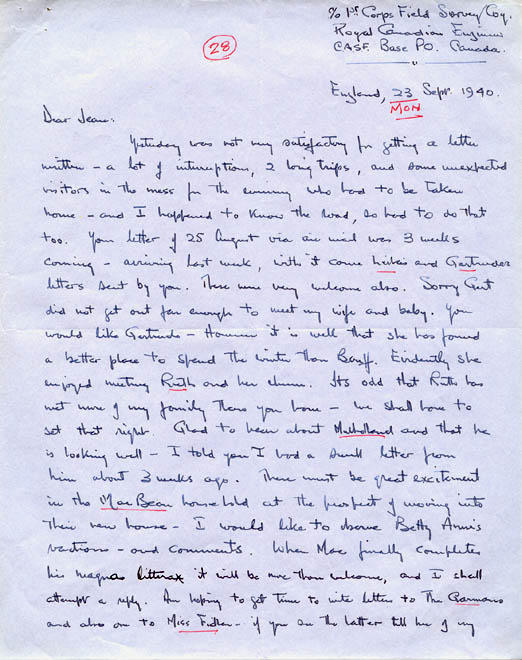 % 1st Corps Field Survey Coy.
Royal Canadian Engineers
CASF. Base P.O. Canada.
28
England, 23 Sept. 1940.
MON
Dear Jean:
Yesterday was not very satisfactory for getting a letter
written - a lot of interruptions, 2 long trips, and some unexpected
visitors in the mess for the evening who had to be taken
home - and I happened to know the road, so had to do that
too. Your letter of 25 August via air mail was 3 weeks
coming - arriving last week, with it came and Gertrudes
letters sent by you. These were very welcome also. Sorry Gert
did not get out far enough to meet my wife and baby. You
would like Gertrude - However it is well that she has found
a better place to spend the winter than Banff. Evidently she
enjoyed meeting Ruth and her chum. Its odd that Ruth has
met more of my family than you have - we shall have to
set that right. Glad to hear about Mulholland and that he
is looking well - I told you I had a letter from
him about 3 weeks ago. There must be great excitement
in the MacBean household at the prospect of moving into
their new house - I would like to observe Betty Ann's
reactions - and comments. When Mac finally completes
his it will be more than welcome, and I shall
attempt a reply. Am hoping to get time to write letters to The
and also one to Miss - if you see the latter tell her of my